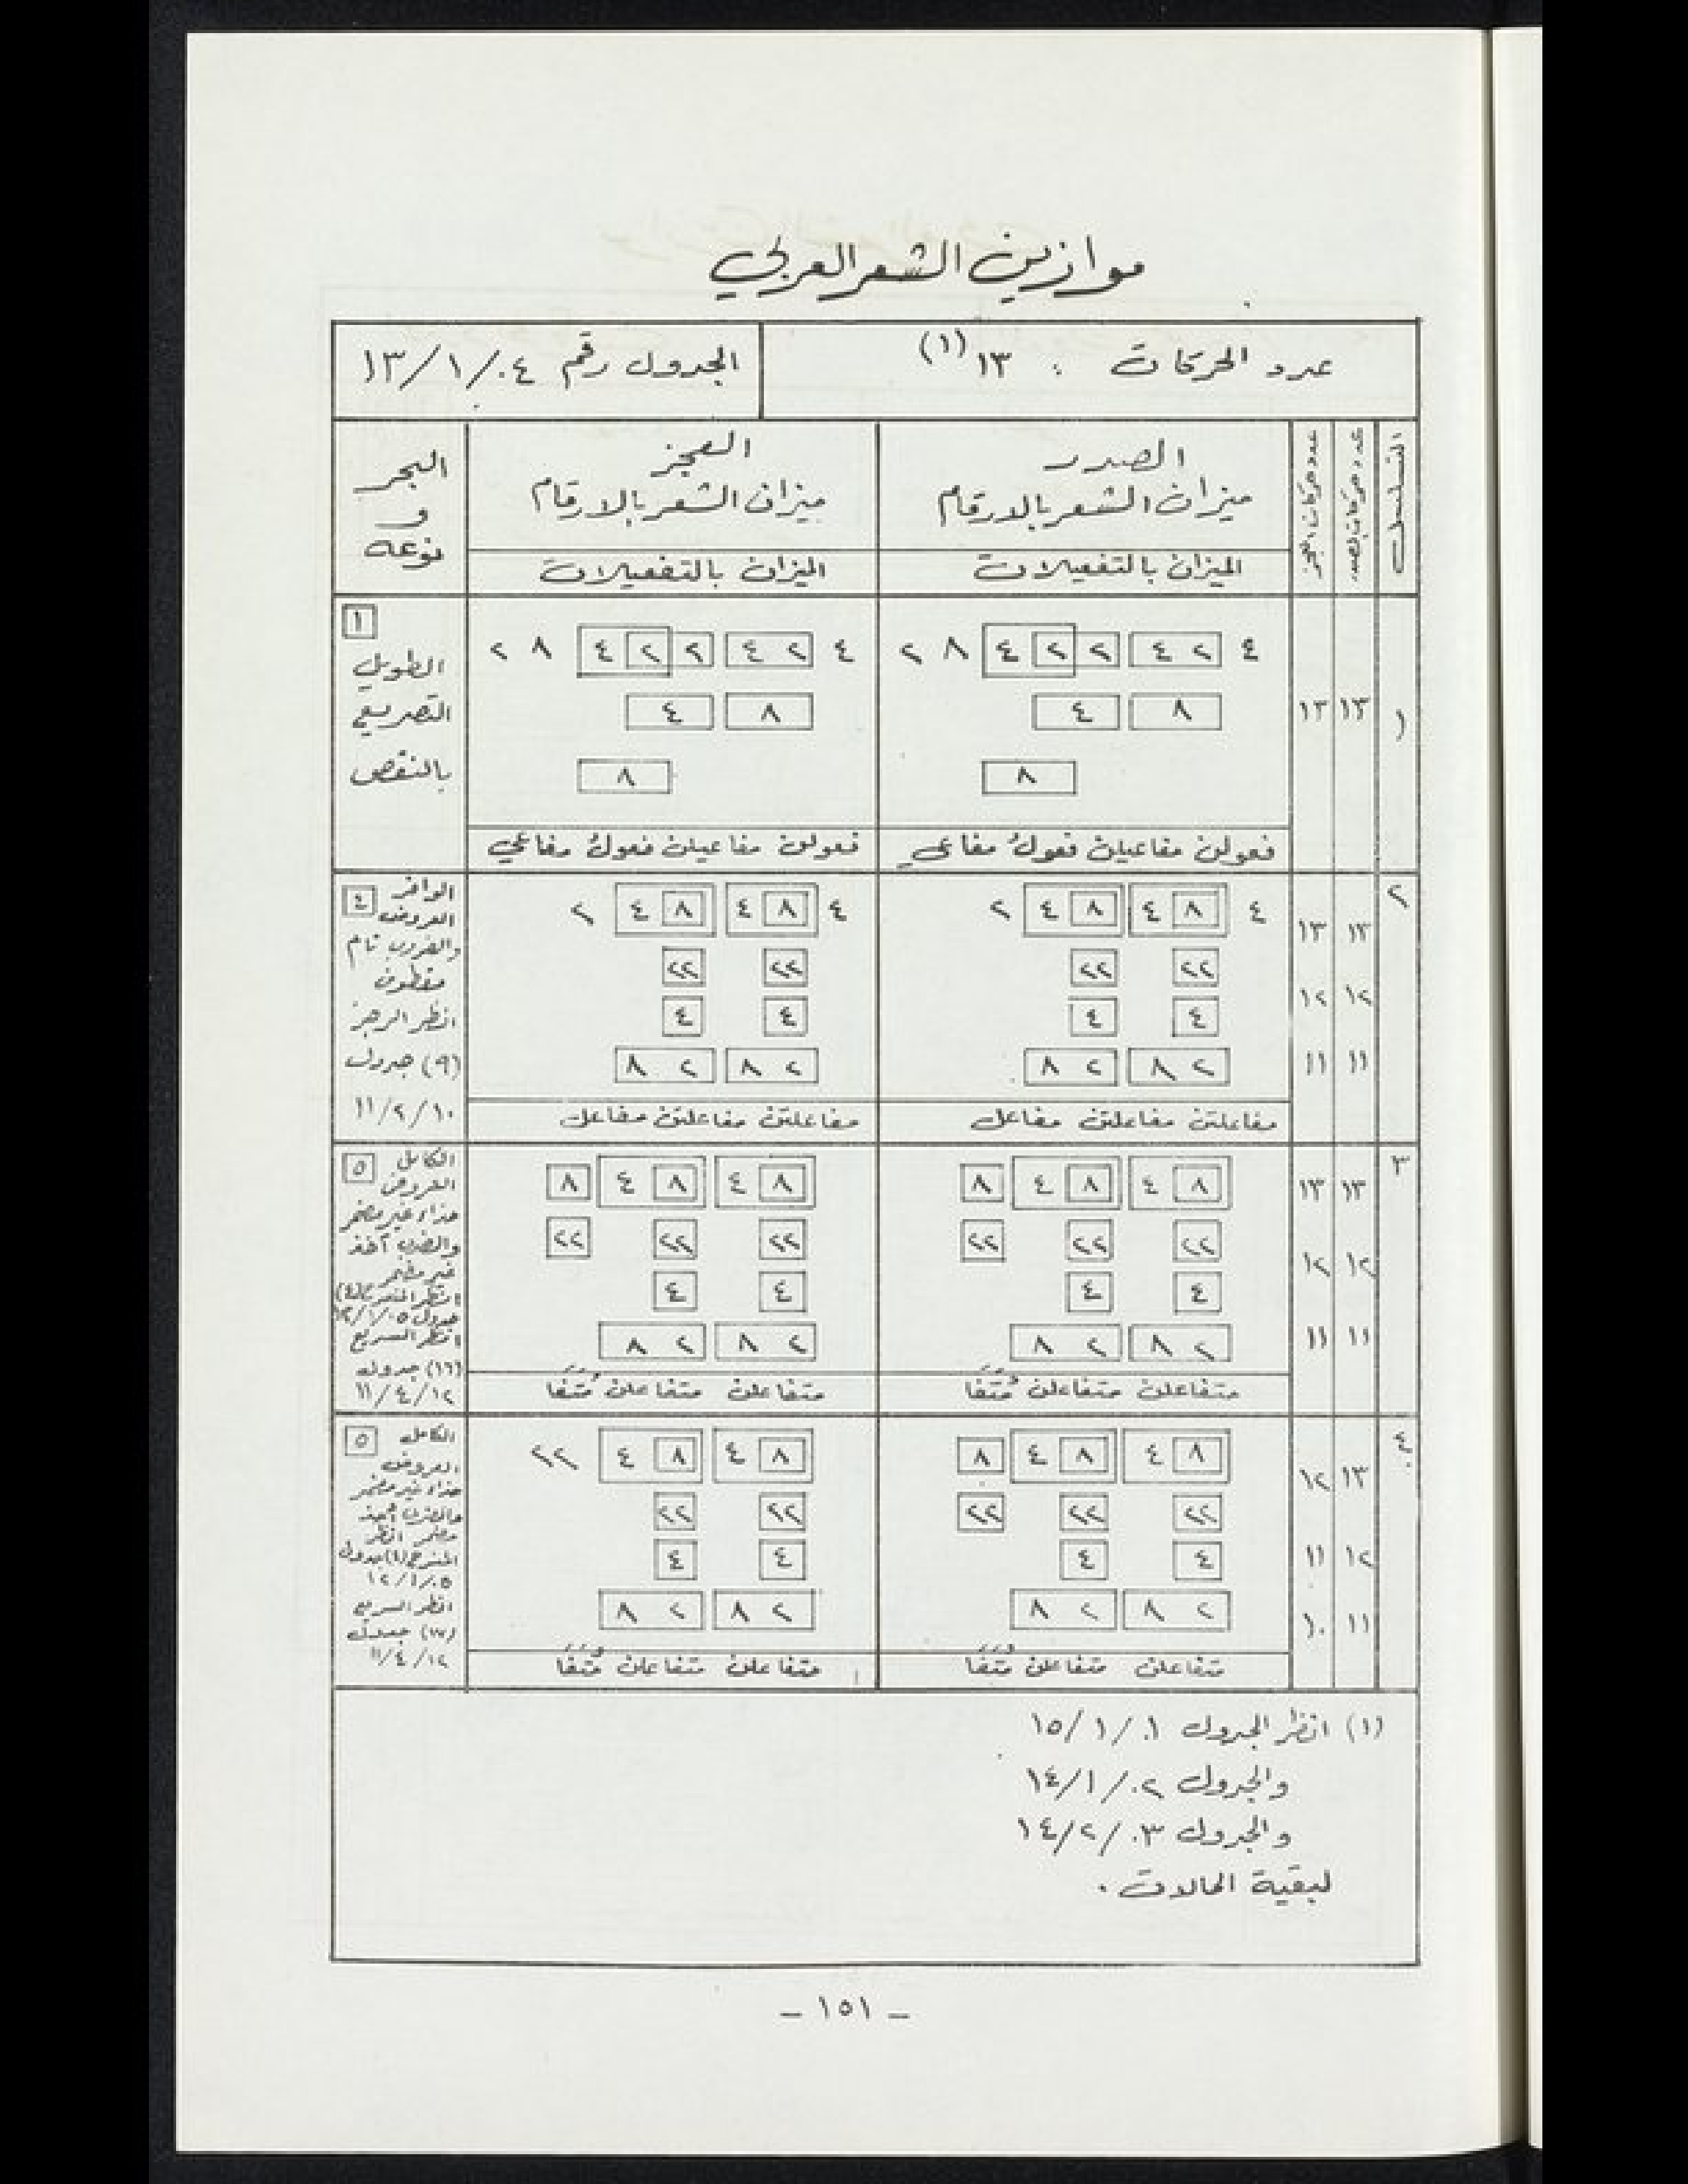 موازين الشعر العربي
عدد الحركات : ١٣ (١)
الجدول رقم ٠٤ / ١ / ١٣
التسلسل
عدد حركات الصدر
عدد حركات العجز
الصدر
ميزان الشعر بالارقام
الميزان بالتفعيلات
العجز
ميزان الشعر بالارقام
الميزان بالتفعيلات
البحر
و
نوعه
١
١٣ ١٣
٤ ٢ ٤ ٢ ٢ ٤ ٨ ٢
٨ ٤
٨
فعولن مفاعيلن فعولُ مفاعي
٤ ٢ ٤ ٢ ٢ ٤ ٨ ٢
٨ ٤
٨
فعولن مفاعيلن فعولُ مفاعي
١
الطويل
التصريعي
بالنقص
٢
١٣ ١٣
١٢ ١٢
١١ ١١
٤ ٨ ٤ ٨ ٤ ٢
٢٢ ٢٢
٤ ٤
٢ ٨ ٢ ٨
مفاعلتن مفاعلتن مفاعل
٤ ٨ ٤ ٨ ٤ ٢
٢٢ ٢٢
٤ ٤
٢ ٨ ٢ ٨
مفاعلتن مفاعلتن مفاعل
الوافر ٤
العروض
والضرب تام
مقطوف
انظر الرجز
(٩) جدول
١٠ / ٢ / ١١
٣
١٣ ١٣
١٢ ١٢
١١ ١١
٨ ٤ ٨ ٤ ٨
٢٢ ٢٢ ٢٢
٤ ٤
٢ ٨ ٢ ٨
متفاعلن متفاعلن مُتَفَا
٨ ٤ ٨ ٤ ٨
٢٢ ٢٢ ٢٢
٤ ٤
٢ ٨ ٢ ٨
متفاعلن متفاعلن مُتَفَا
الكامل ٥
العروض
حذاء غير مضمر
والضرب أحذ
غير مضمر
انظر المنسرح (٤)
جدول ٠٥ / ١ / ١٢
انظر السريع
(١٦) جدول
١٢ / ٤ / ١١
٤
١٣ ١٢
١٢ ١١
١١ ١٠
٨ ٤ ٨ ٤ ٨
٢٢ ٢٢ ٢٢
٤ ٤
٢ ٨ ٢ ٨
متفاعلن متفاعلن مُتَفَا
٨ ٤ ٨ ٤ ٢٢
٢٢ ٢٢
٤ ٤
٢ ٨ ٢ ٨
متفاعلن متفاعلن مُتَفَا
الكامل ٥
العروض
حذاء غير مضمر
والضرب أحذ
مضمر انظر
المنسرح جدول
٠٥ / ١ / ١٢
انظر السريع
(١٧) جدول
١٢ / ٤ / ١١
(١) انظر الجدول ٠١ / ١ / ١٥
والجدول ٠٢ / ١ / ١٤
والجدول ٠٣ / ٢ / ١٤
لبقية الحالات .
– ١٥١ –